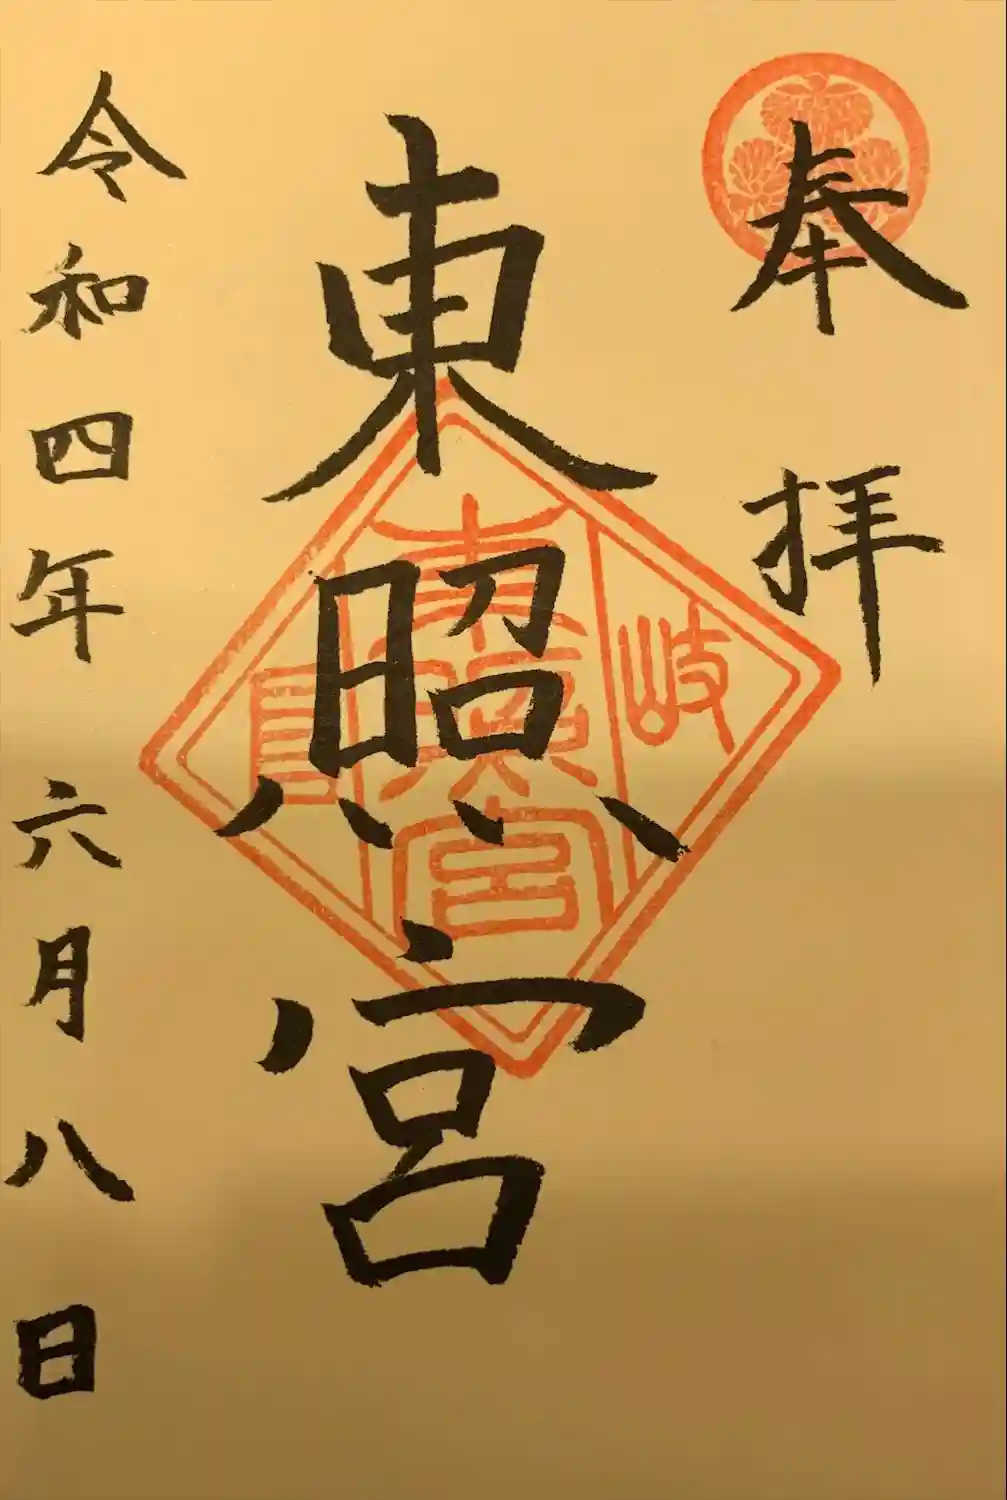 奉拝
岐
東照宮
東照宮
令和四年六月八日